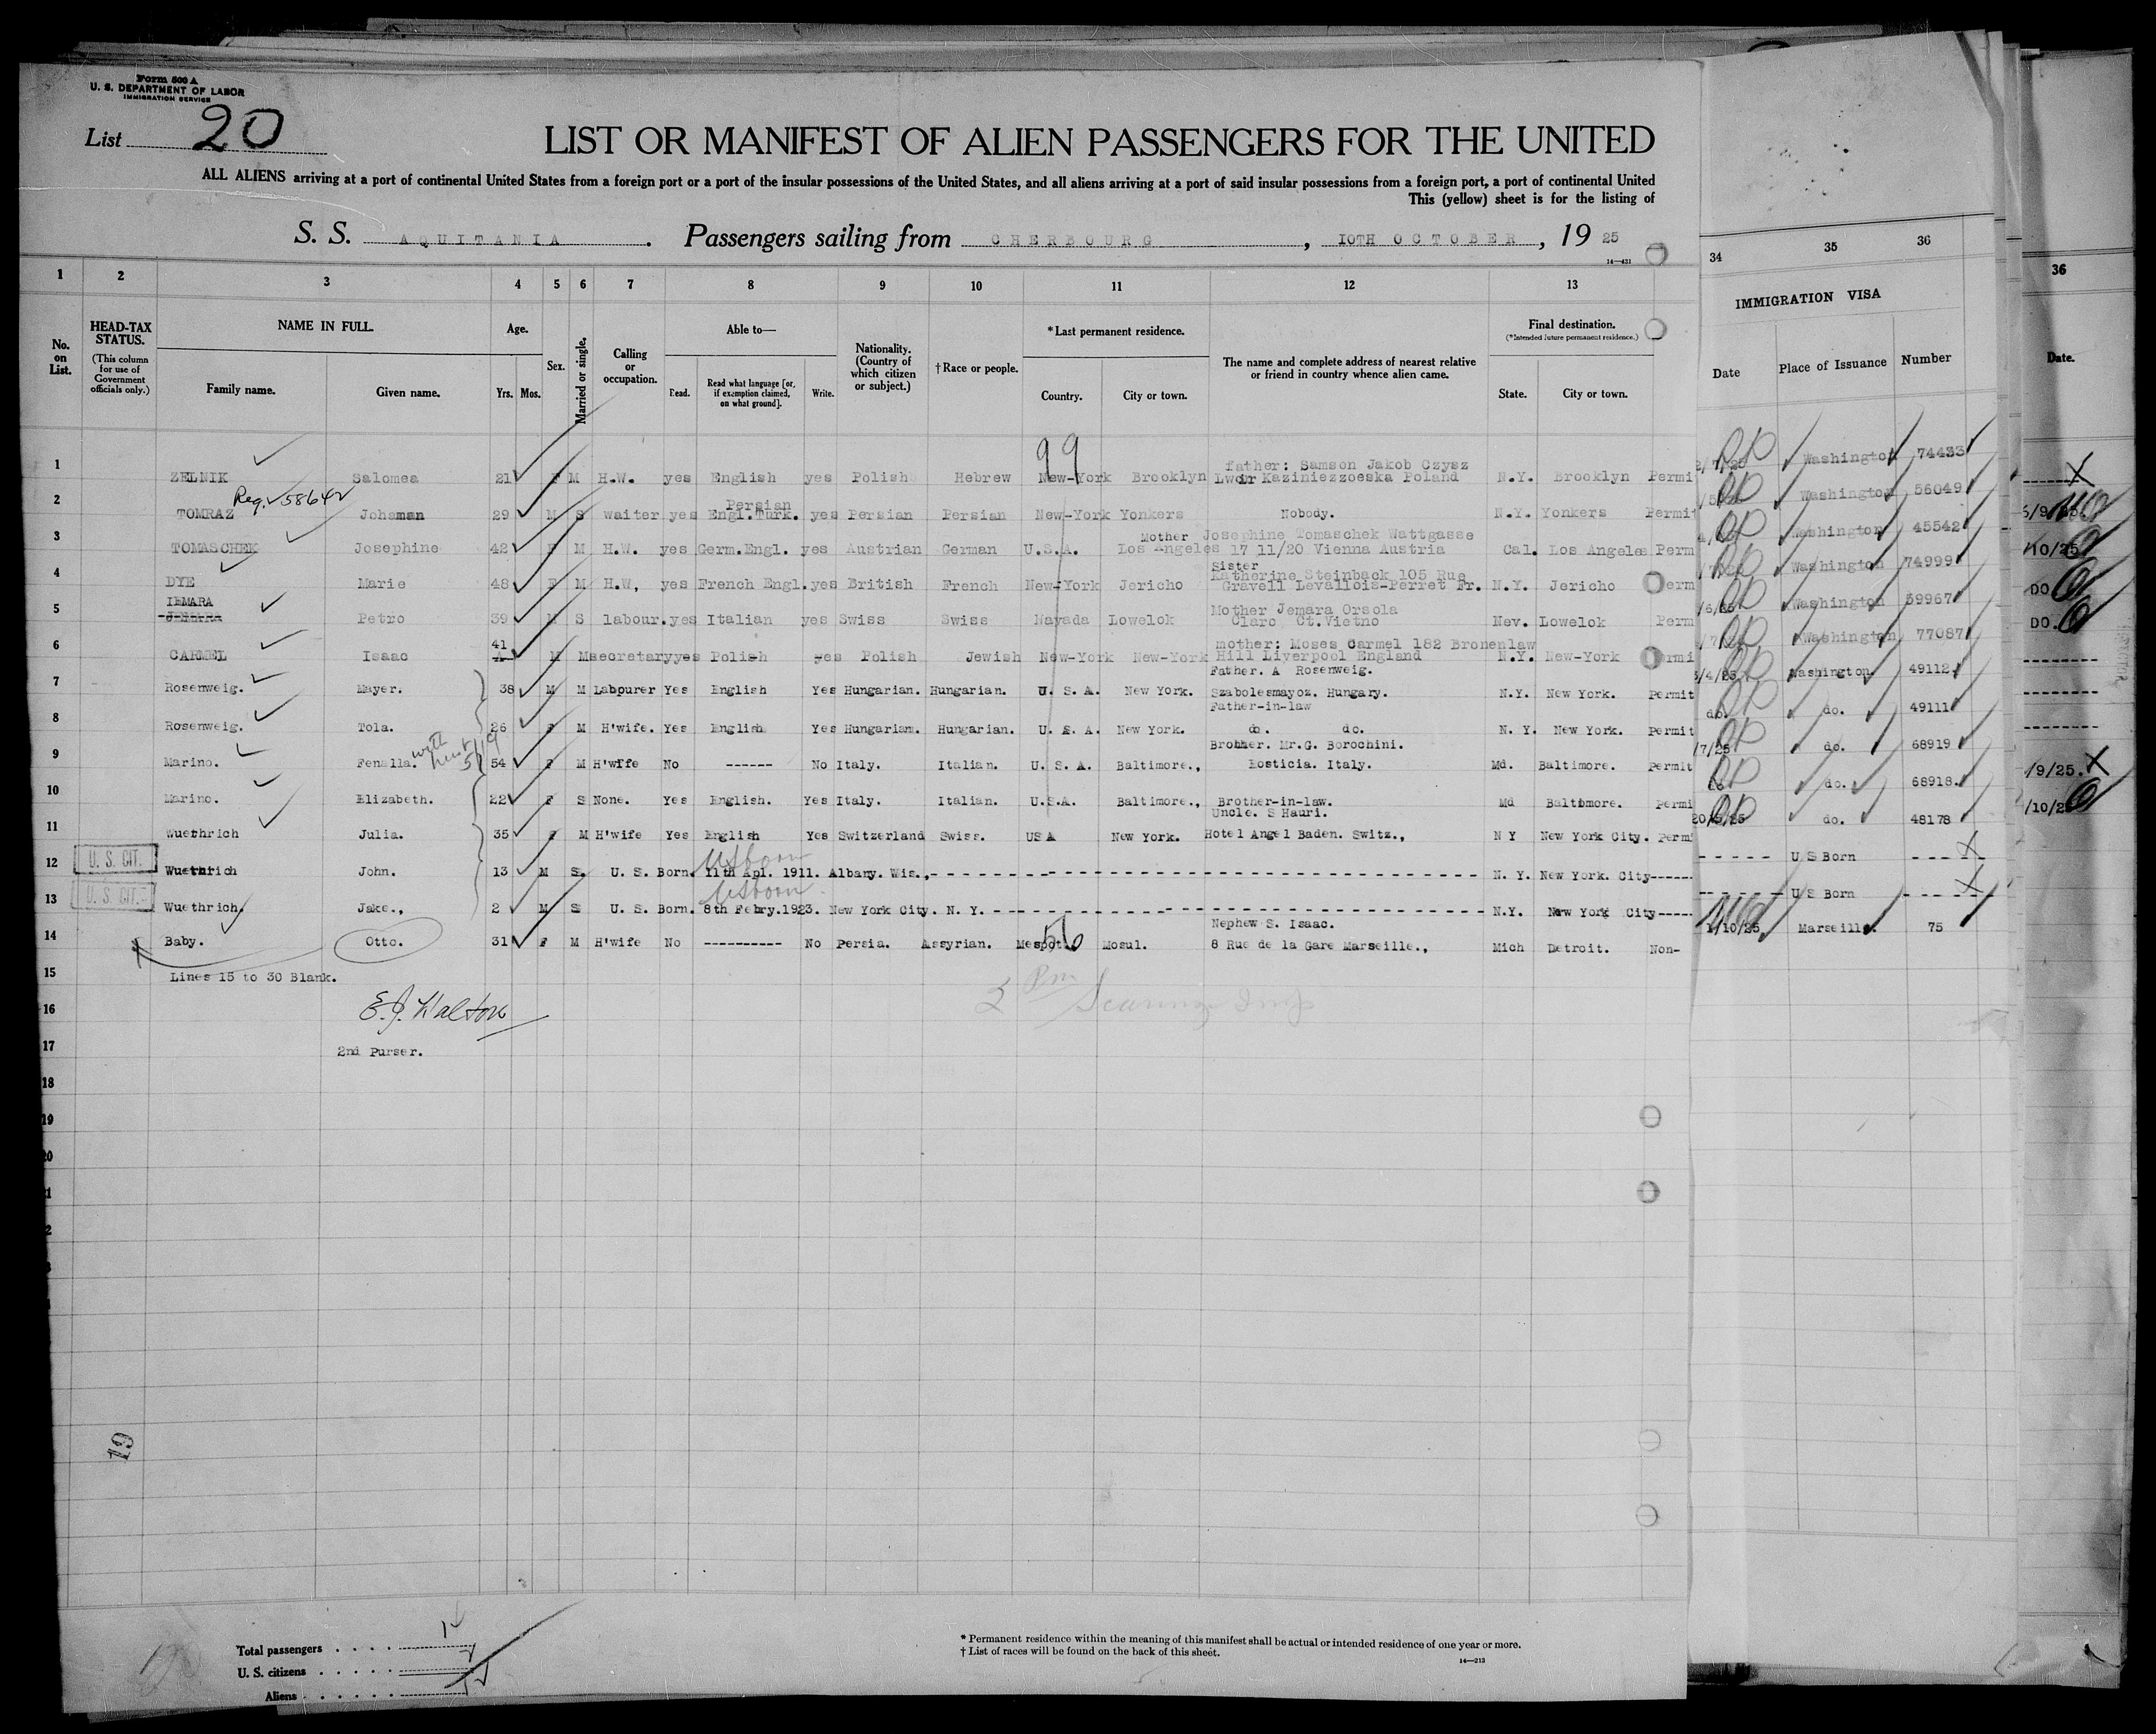 Form 500 A
U. S. DEPARTMENT OF LABOR
IMMIGRATION SERVICE
List 20
LIST OR MANIFEST OF ALIEN PASSENGERS FOR THE UNITED
ALL ALIENS arriving at a port of continental United States from a foreign port or a port of the insular possessions of the United States, and all aliens arriving at a port of said insular possessions from a foreign port, a port of continental United
This (yellow) sheet is for the listing of
S. S. AQUITANIA. Passengers sailing from CHERBOURG, 10TH OCTOBER, 19 25
14—431
1 2 3 4 5 6 7 8 9 10 11 12 13 34 35 36 36
No. on List.
HEAD-TAX STATUS.
(This column for use of Government officials only.)
NAME IN FULL.
Family name. Given name.
Age.
Yrs. Mos.
Sex.
Married or single.
Calling or occupation.
Able to—
Read. Read what language [or, if exemption claimed, on what ground]. Write.
Nationality. (Country of which citizen or subject.)
† Race or people.
* Last permanent residence.
Country. City or town.
The name and complete address of nearest relative or friend in country whence alien came.
Final destination.
(*Intended future permanent residence.)
State. City or town.
IMMIGRATION VISA
Date Place of Issuance Number
Date.
99
father: Samson Jakob Czysz
1 ZELNIK Salomea 21 F M H.W. yes English yes Polish Hebrew New-York Brooklyn Lwow Kaziniezzoeska Poland N.Y. Brooklyn Permi Washington 74433
Reg. 58642
Persian
2 TOMRAZ Johaman 29 M S waiter yes Engl. Turk. yes Persian Persian New-York Yonkers Nobody. N.Y. Yonkers Permit Washington 56049
Mother Josephine Tomaschek Wattgasse
3 TOMASCHEK Josephine 42 F M H.W. yes Germ.Engl. yes Austrian German U.S.A. Los Angeles 17 11/20 Vienna Austria Cal. Los Angeles Perm Washington 45542
Sister
Katherine Steinback 105 Rue
4 DYE Marie 48 F M H.W, yes French Engl. yes British French New-York Jericho Gravell Levallois-Perret Fr. N.Y. Jericho erm Washington 74999
IEMARA
Mother Jemara Orsola
5 Petro 39 M S labour. yes Italian yes Swiss Swiss Navada Lowelok Claro Ct.Vietno Nev. Lowelok Perm Washington 59967
41
mother: Moses Carmel 182 Bronenlaw
6 CARMEL Isaac M M secretary yes Polish yes Polish Jewish New-York New-York Hill Liverpool England N.Y. New-York ermi Washington 77087
Father. A Rosenweig.
7 Rosenweig. Mayer. 38 M M Labourer Yes English Yes Hungarian. Hungarian. U. S. A. New York. Szabolesmayoz. Hungary. N.Y. New York. Permit Washington 49112
Father-in-law
8 Rosenweig. Tola. 26 F M H'wife. Yes English Yes Hungarian. Hungarian. U. S. A. New York. do. do. N. Y. New York. Permit do. do. 49111
with
Brother. Mr.G. Borochini.
9 Marino. Fenalla. 54 F M H'wife No ------ No Italy. Italian. U. S. A. Baltimore., Hosticia. Italy. Md. Baltimore. Permit /7/25 do. 68919 /9/25.
10 Marino. Elizabeth. 22 F S None. Yes English. Yes Italy. Italian. U.S.A. Baltimore., Brother-in-law. Md Baltimore. Permi do do. 68918. /10/25
Uncle. S Hauri.
11 Wuethrich Julia. 35 F M H'wife Yes English Yes Switzerland Swiss. USA New York. Hotel Angel Baden. Switz., N Y New York City. Perm do. 48178
US born
12 U. S. CIT. Wuethrich John. 13 M S. U. S. Born. 11th Apl. 1911. Albany. Wis., N. Y. New York. City------ U S Born
US born
13 U. S. CIT. Wuethrich Jake., 2 M S U. S. Born. 8th Febry.1923. New York City. N. Y. N.Y. New York City----- U S Born
Nephew S. Isaac.
14 Baby. Otto. 31 F M H'wife No ---------- No Persia. Assyrian. Mespot. 56 Mosul. 8 Rue de la Gare Marseille., Mich Detroit. Non- 1/10/25 Marseille. 75
15 Lines 15 to 30 Blank.
16 E.J. Walton
17 2nd Purser.
18
19
19
Total passengers
U. S. citizens
Aliens
* Permanent residence within the meaning of this manifest shall be actual or intended residence of one year or more.
† List of races will be found on the back of this sheet.
14—213